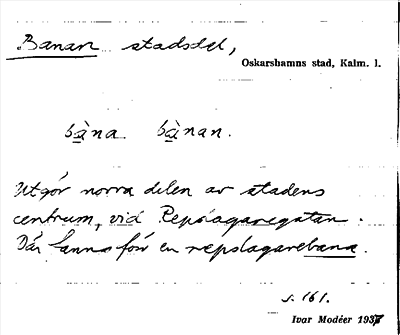 Banan stadsdel,
Oskarshamns stad, Kalm. l.
bàna bànan.
Utgör norra delen av stadens
centrum, vid Repslagaregatan.
Där fanns förr en repslagarebana.
s. 161.
Ivar Modéer 1937